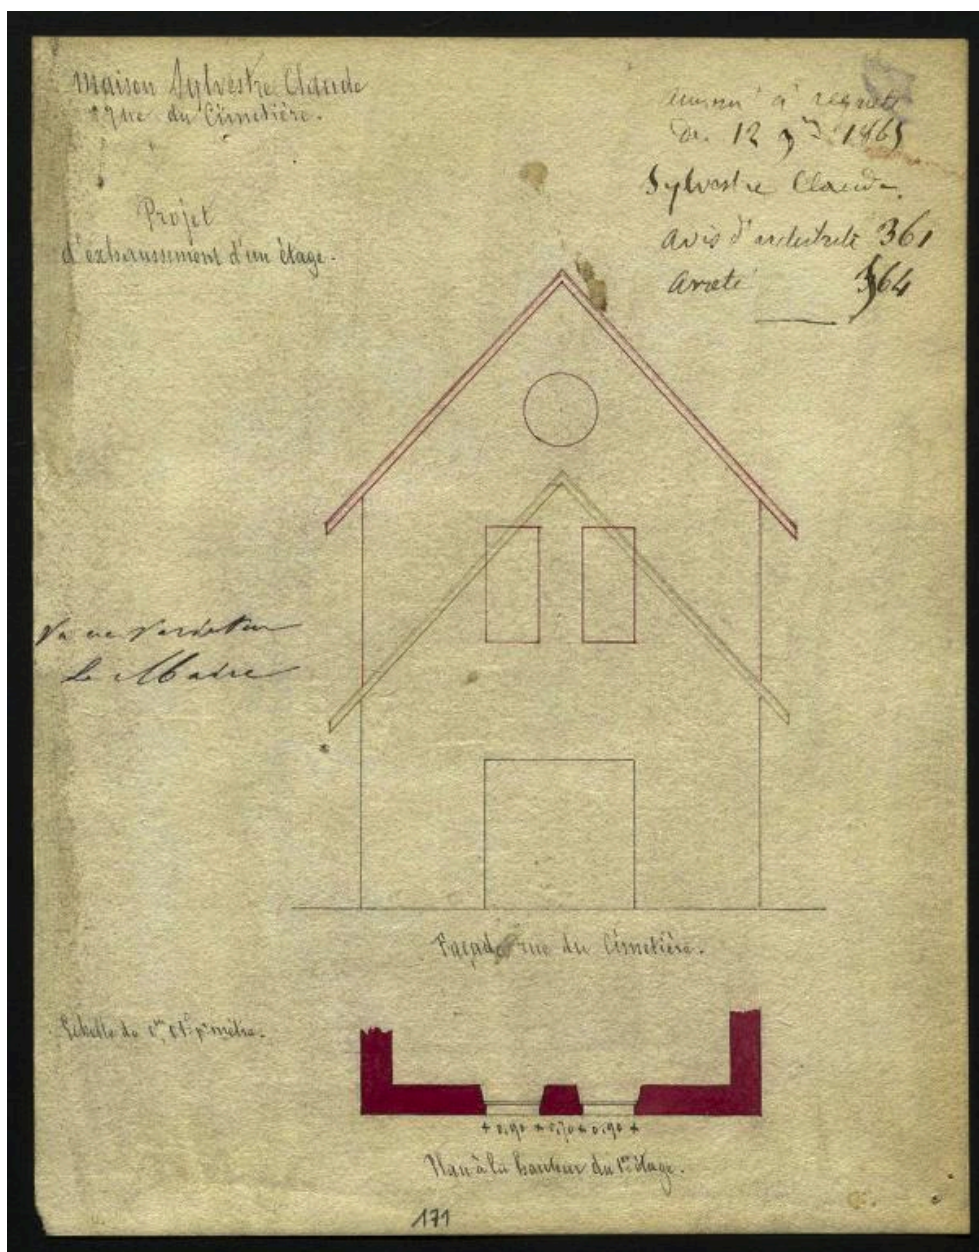 Maison Sylvestre Claude
rue du Cimetière.
Projet
d'exhaussement d'un étage.
à requete
du 12 9bre 1865
Sylvestre Claude
Avis d'architecte 361
Arreté 364
Le Maire
Façade rue du Cimetière.
Echelle de 0m,01c pr mètre.
0,90 0,70 0,90
Plan à la hauteur du 1er étage.
171